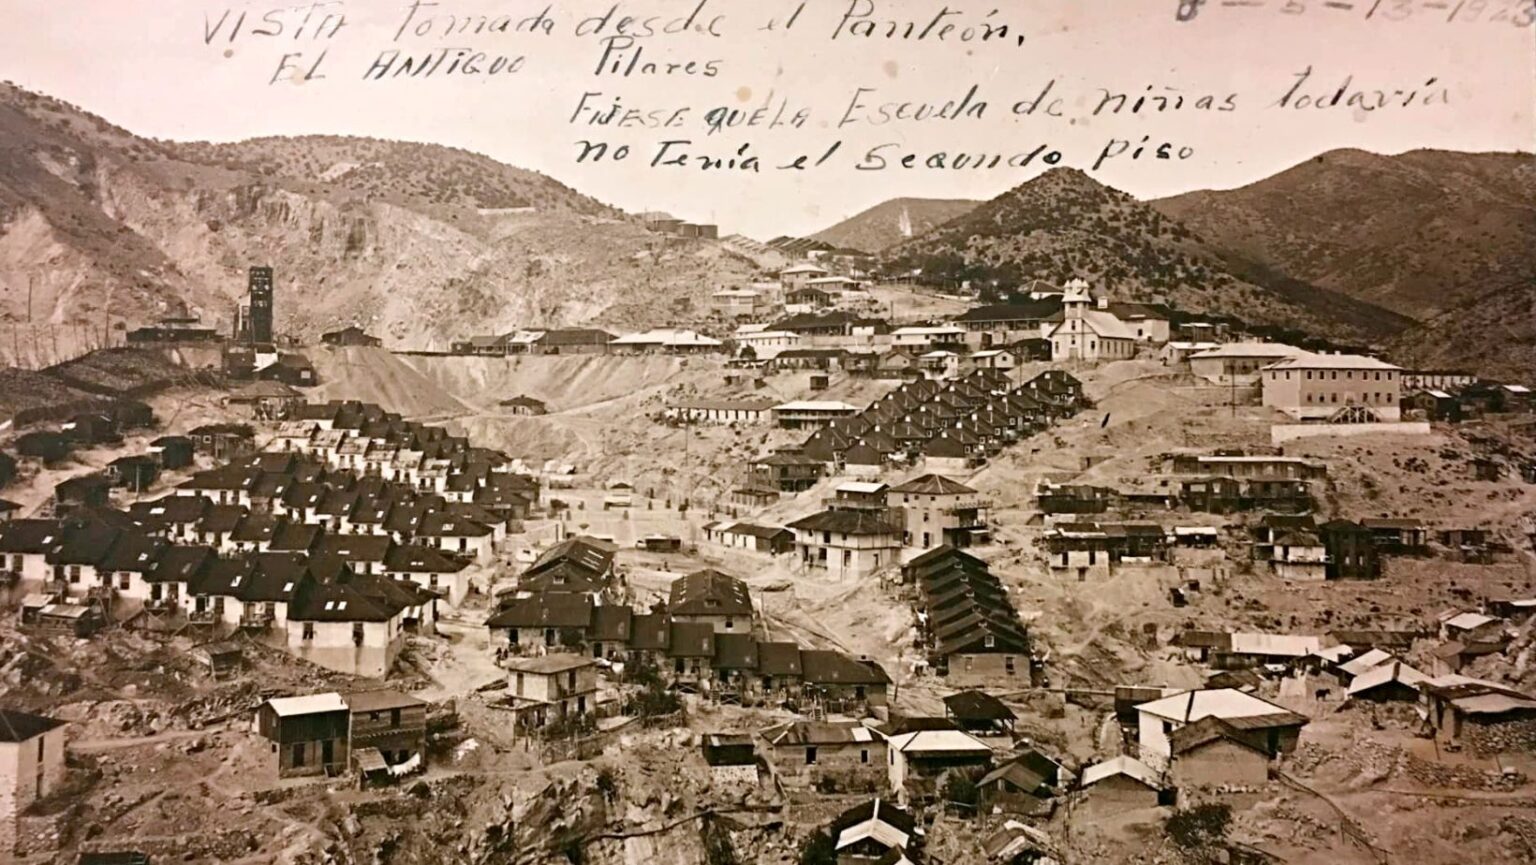 VISTA Tomada desde el Panteón,
8-5-13-1923
EL ANTIGUO Pilares
FIJESE QUE LA Escuela de niñas todavía
no Tenía el Segundo piso